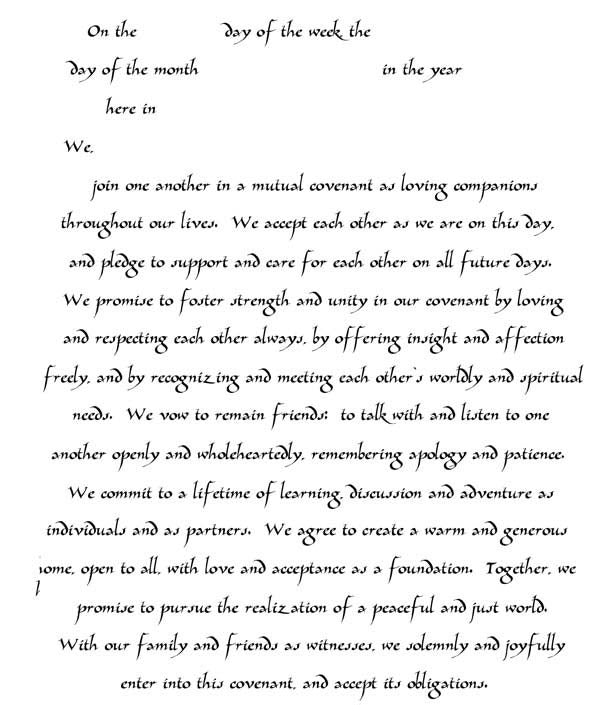 On the day of the week the
day of the month in the year
here in
We,
join one another in a mutual covenant as loving companions
throughout our lives. We accept each other as we are on this day,
and pledge to support and care for each other on all future days.
We promise to foster strength and unity in our covenant by loving
and respecting each other always, by offering insight and affection
freely, and by recognizing and meeting each other's worldly and spiritual
needs. We vow to remain friends: to talk with and listen to one
another openly and wholeheartedly, remembering apology and patience.
We commit to a lifetime of learning, discussion and adventure as
individuals and as partners. We agree to create a warm and generous
ome, open to all, with love and acceptance as a foundation. Together, we
promise to pursue the realization of a peaceful and just world.
With our family and friends as witnesses, we solemnly and joyfully
enter into this covenant, and accept its obligations.